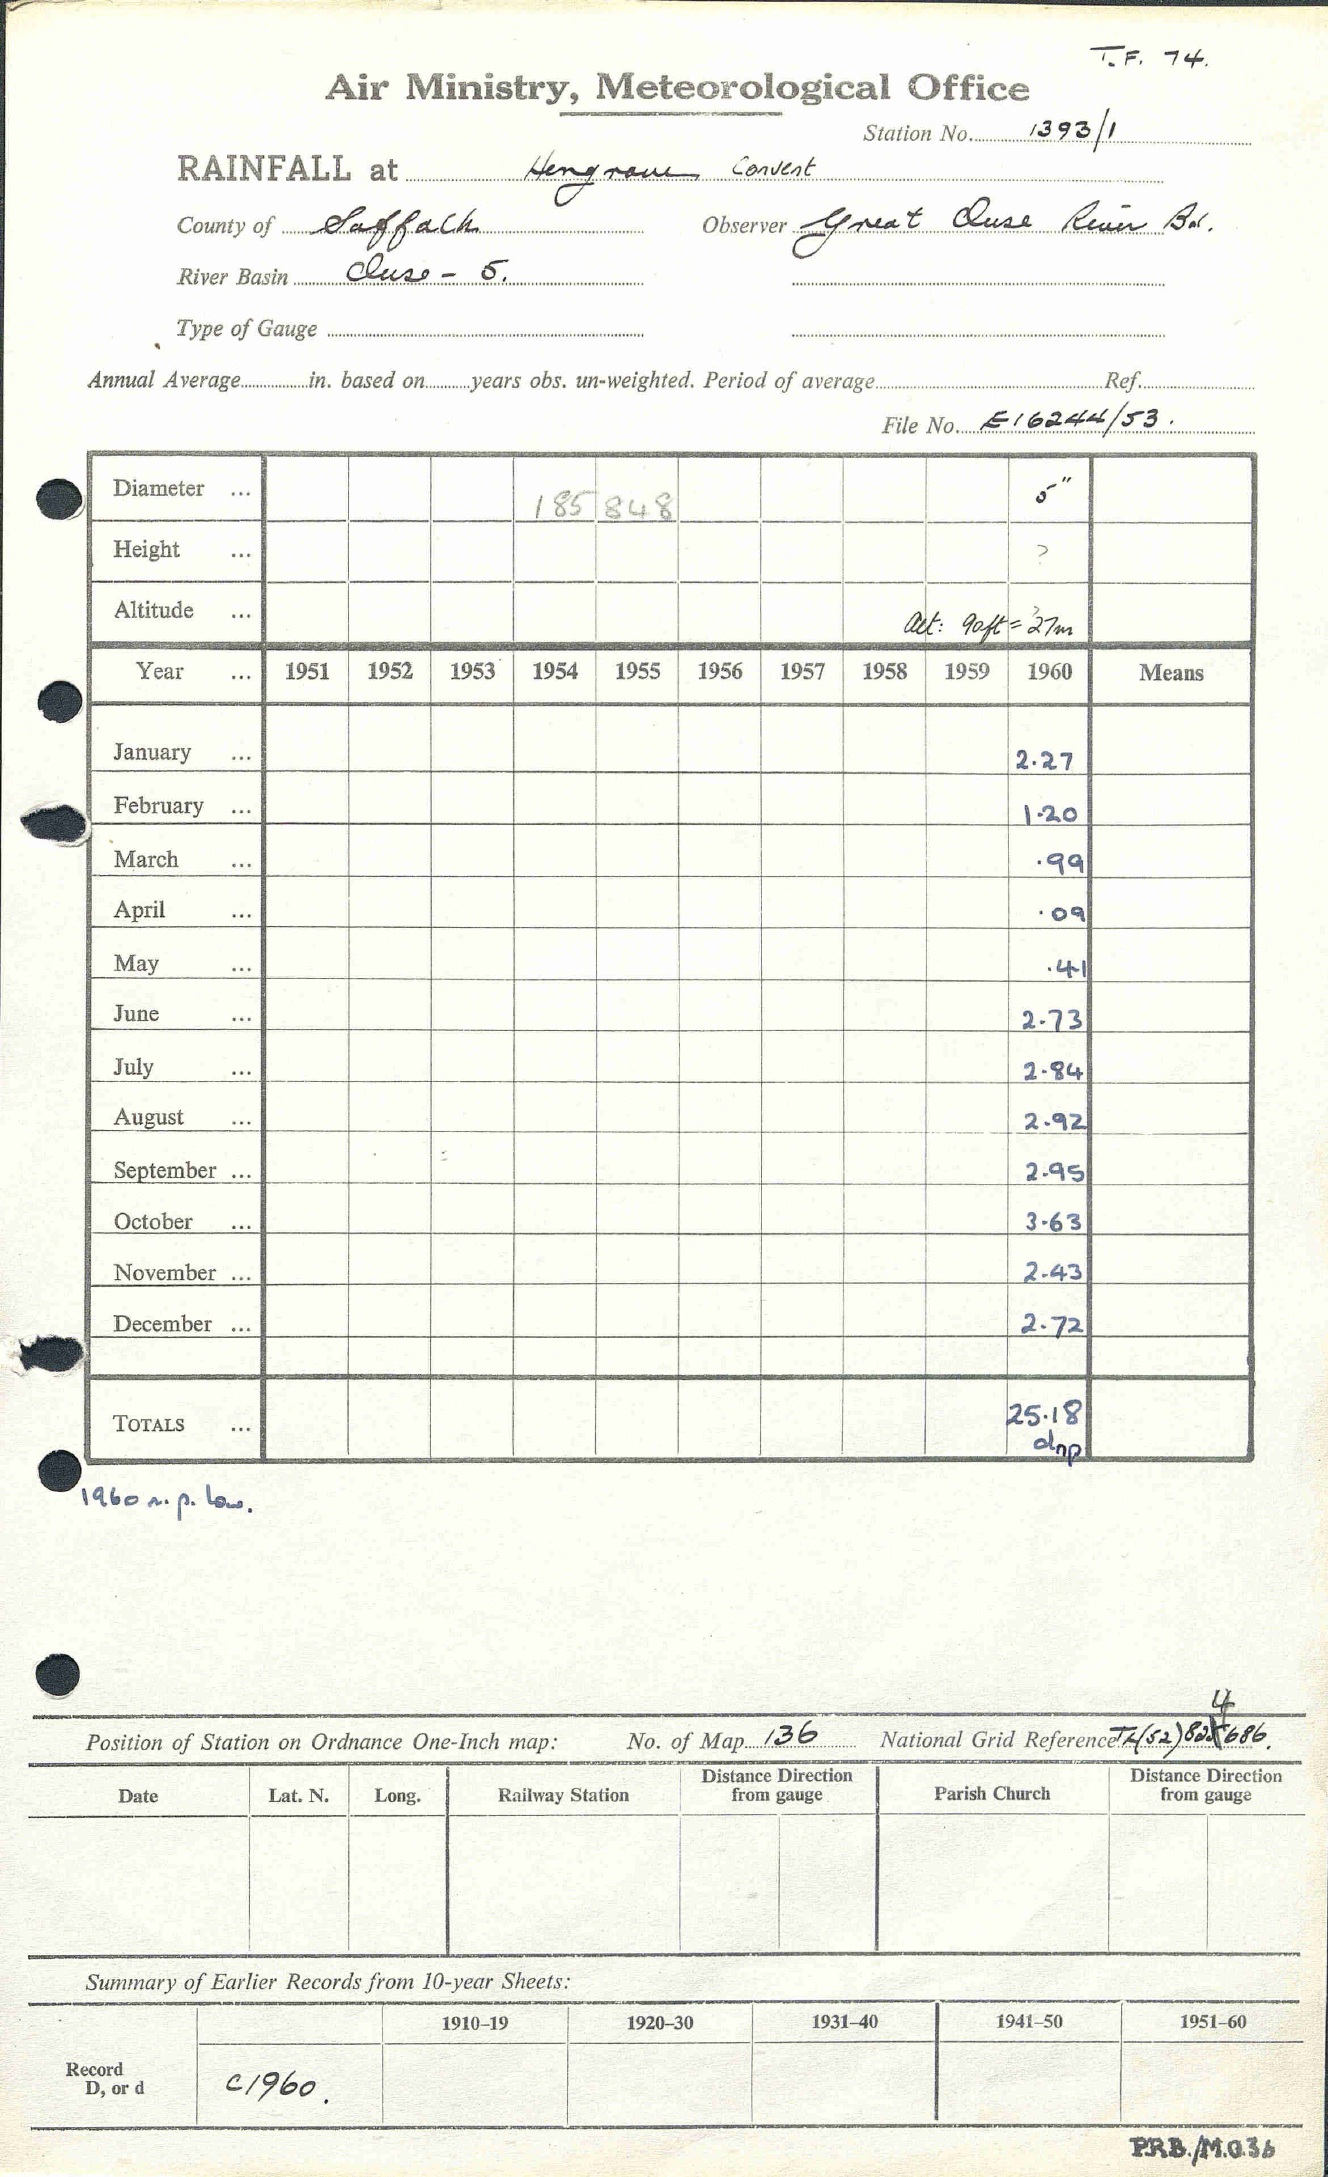 T.F. 74.
Air Ministry, Meteorological Office
Station No. 1393/1
RAINFALL at Hengrave Convent
County of Suffolk Observer Great Ouse River Bd.
River Basin Ouse - 5.
Type of Gauge
Annual Average in. based on years obs. un-weighted. Period of average Ref.
File No. E16244/53.
Diameter ... 185 848 5"
Height ... ?
Altitude ... Alt: 90ft = 27m
Year ... 1951 1952 1953 1954 1955 1956 1957 1958 1959 1960 Means
January ... 2.27
February ... 1.20
March ... .99
April ... .09
May ... .41
June ... 2.73
July ... 2.84
August ... 2.92
September ... 2.95
October ... 3.63
November ... 2.43
December ... 2.72
TOTALS ... 25.18
dnp
1960 n.p. low.
4
Position of Station on Ordnance One-Inch map: No. of Map 136 National Grid Reference TL(52) 686.
Date Lat. N. Long. Railway Station Distance Direction from gauge Parish Church Distance Direction from gauge
Summary of Earlier Records from 10-year Sheets:
1910-19 1920-30 1931-40 1941-50 1951-60
Record
D, or d c1960.
P.R.B./M.O.36